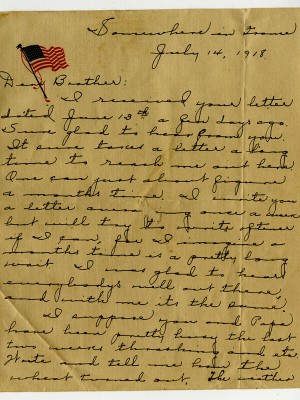 Somewhere in France
July 14, 1918
Dear Brother:
I received your letter
dated June 13th a few days ago.
Sure glad to hear from you.
It sure takes a letter a long
time to reach me out here.
One can just about figure
a months time. I write you
a letter once a week
but will try to write oftener
if I can, for I imagine a
months time is a pretty long
wait I was glad to hear
everybodys well out there,
and with me its the same.
I suppose you and Papa
have been pretty busy the last
two weeks thrashing and etc.
Write and tell me how the
wheat turned out. The weather